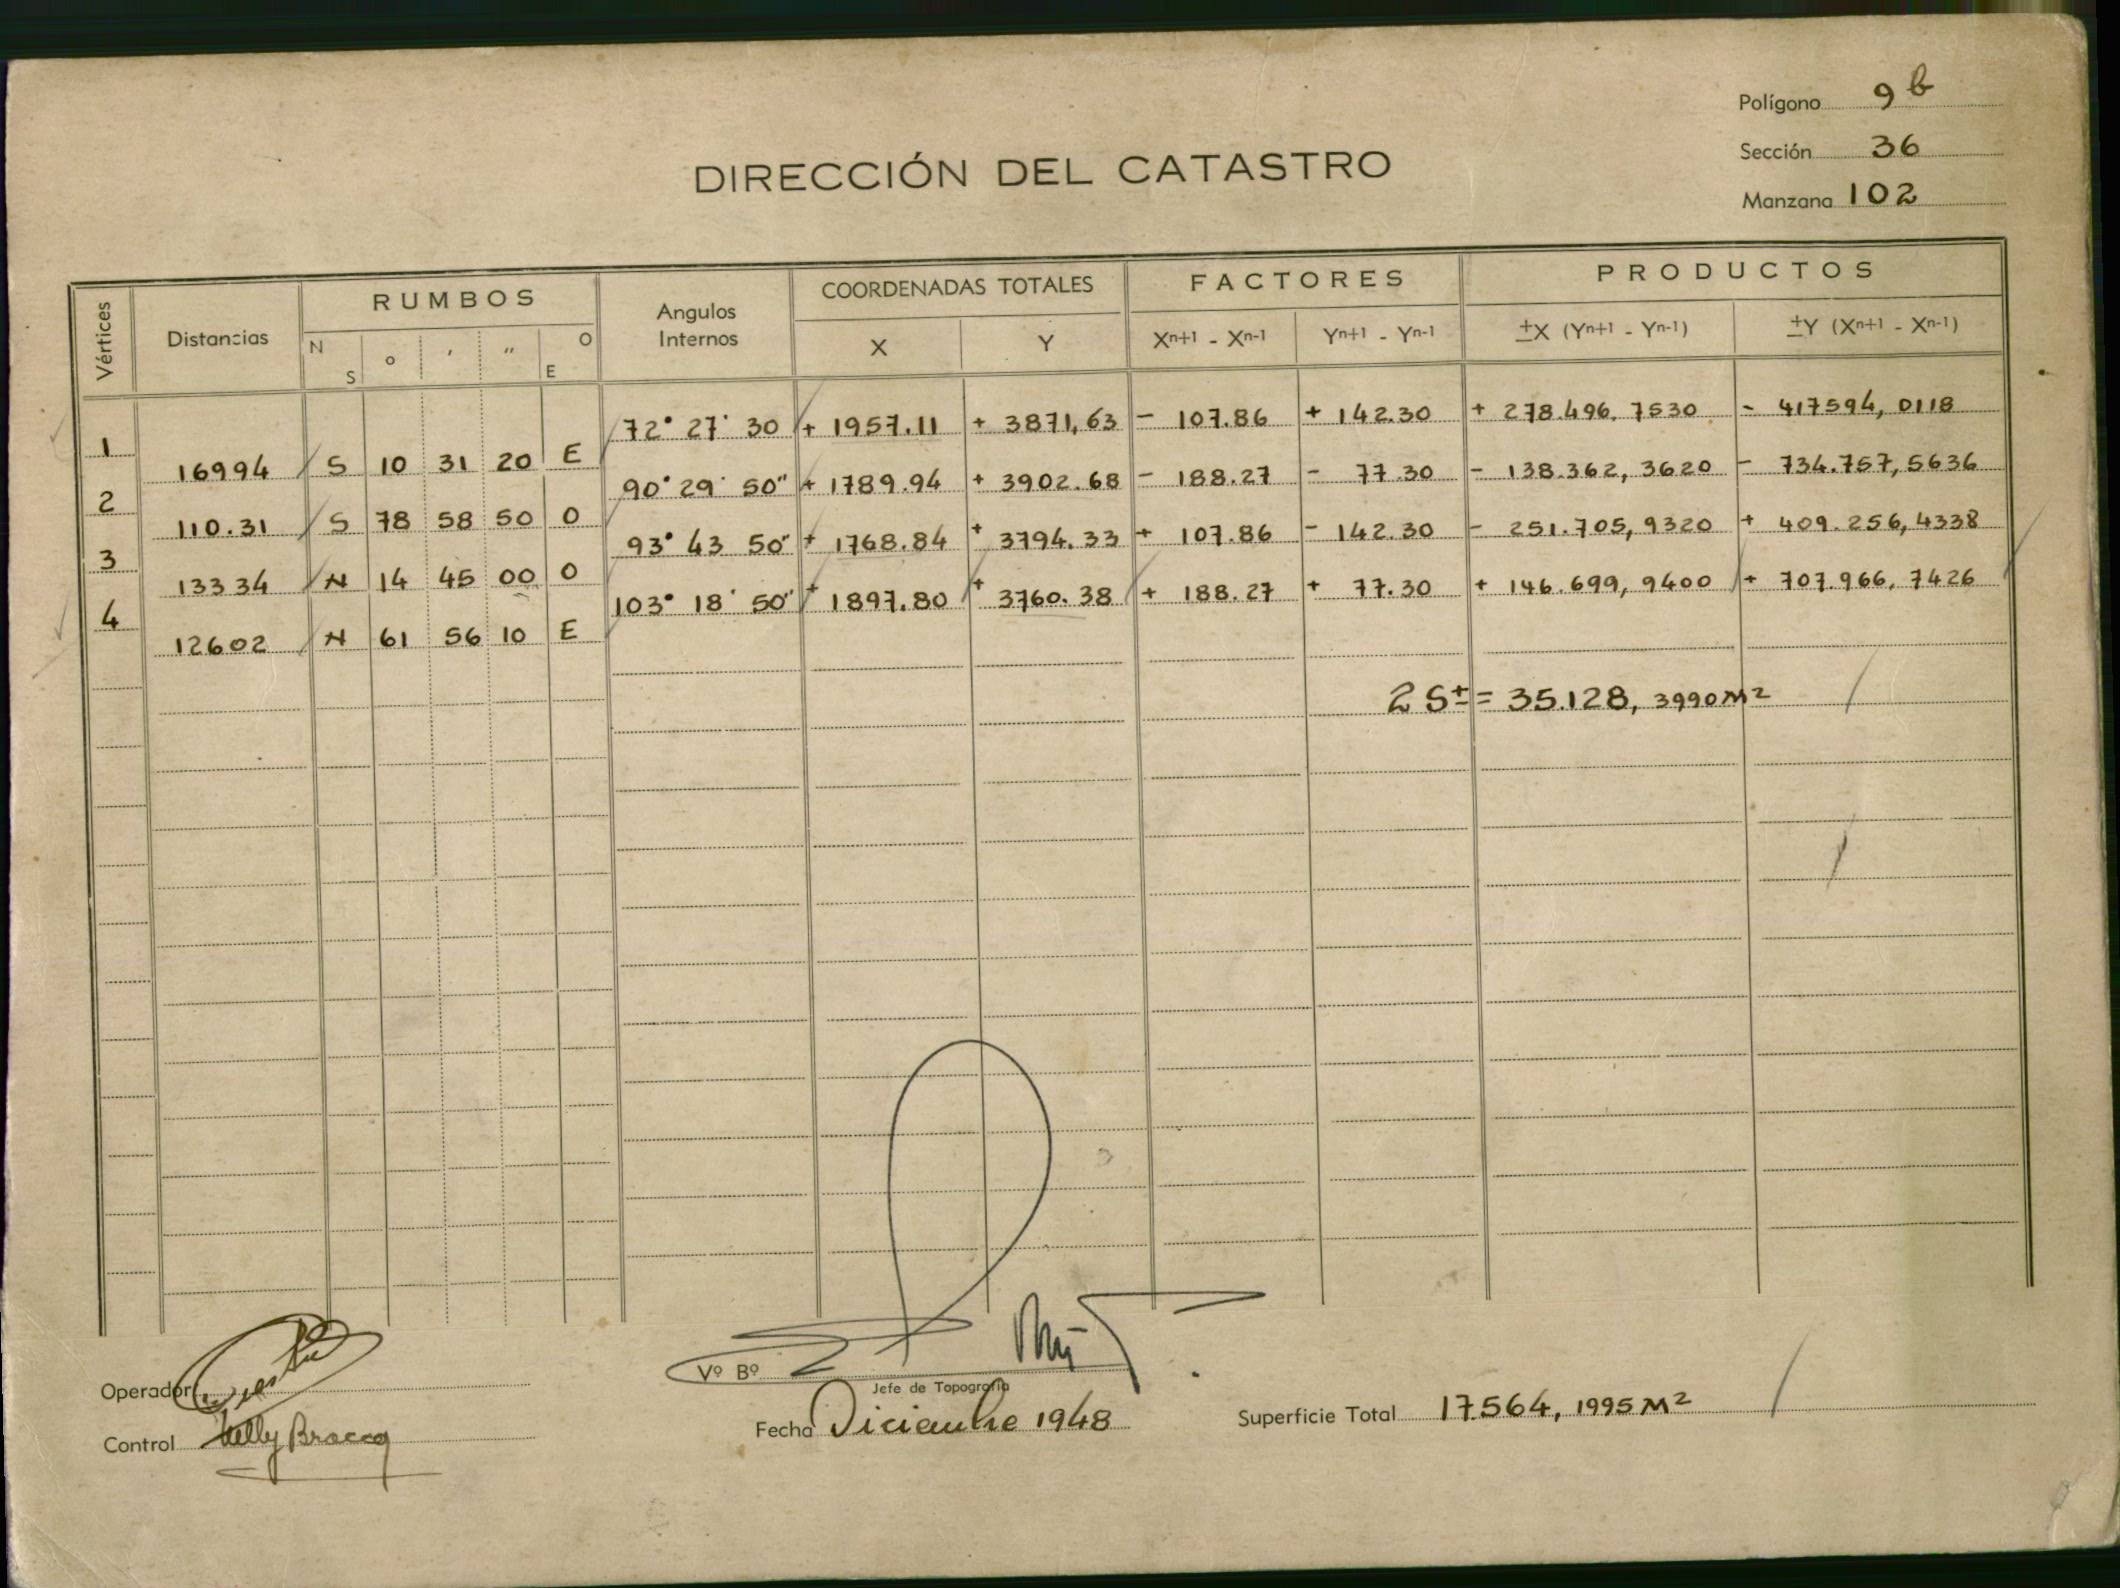 Polígono 9 b
Sección 36
Manzana 102
DIRECCIÓN DEL CATASTRO
Vértices Distancias RUMBOS Angulos Internos COORDENADAS TOTALES FACTORES PRODUCTOS
N S ° ' " O E X Y Xn+1 - Xn-1 Yn+1 - Yn-1 ±X (Yn+1 - Yn-1) ±Y (Xn+1 - Xn-1)
1 72° 27' 30 + 1957.11 + 3871,63 - 107.86 + 142.30 + 278.496.7530 - 417594,0118
16994 S 10 31 20 E
2 90° 29' 50" + 1789.94 + 3902.68 - 188.27 - 77.30 - 138.362,3620 - 734.757,5636
110.31 S 78 58 50 O
3 93° 43 50" + 1768.84 + 3794.33 + 107.86 - 142.30 - 251.705,9320 + 409.256,4338
13334 N 14 45 00 O
4 103° 18' 50" + 1897.80 + 3760.38 + 188.27 + 77.30 + 146.699,9400 + 707.966,7426
12602 N 61 56 10 E
2 S± = 35.128,3990 M²
Operador
Vº Bº
Jefe de Topografía
Control Nelly Bracco
Fecha Diciembre 1948
Superficie Total 17.564,1995 M²